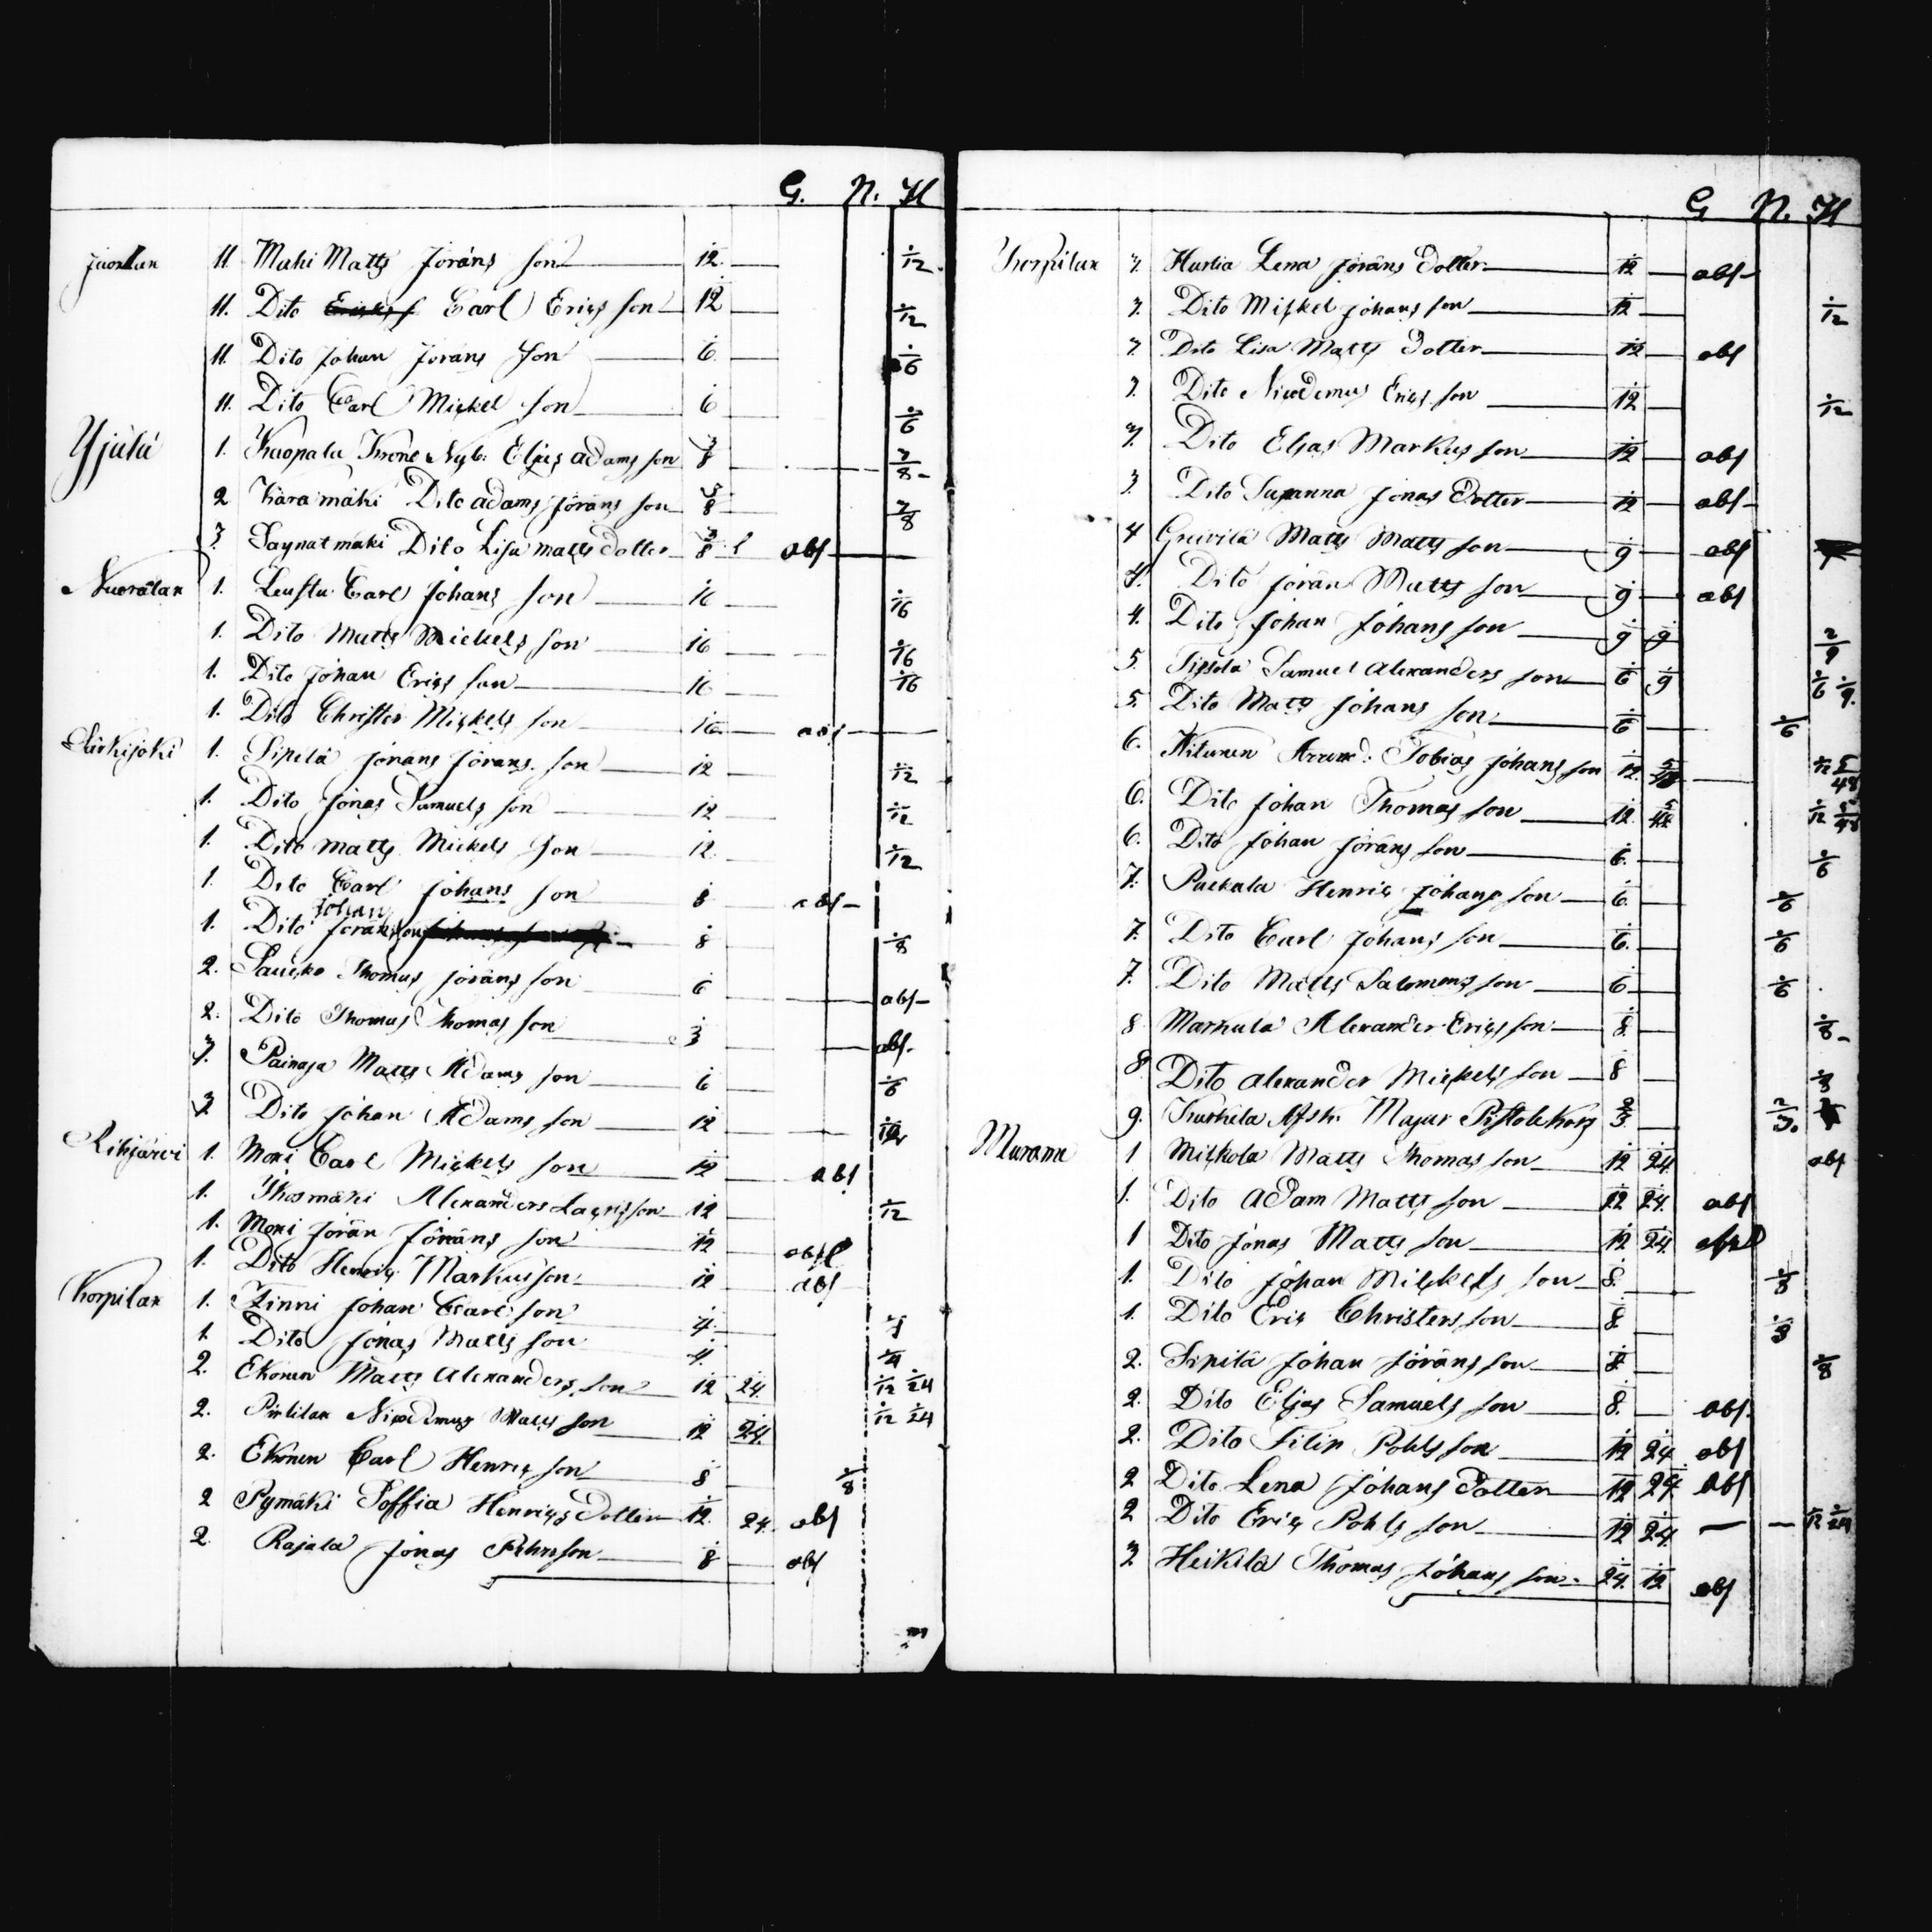 G. N. H
Juonlan 11. Mahi Matts Jörans son 1/12 1/12
11. Dito Carl Erics son 1/12 1/12
11. Dito Johan Jörans son 1/6 1/6
11. Dito Carl Mickel son 1/6 1/6
Yjälä 1. Kuopala Krono Nyb: Elias Adams son 3/8 3/8
2 Karamäki Dito Adams Jörans son 3/8 3/8
3. Saynatmäki Dito Lisa Matts Dotter 3/8 abs
1. Carl Johans son 1/16 1/16
1. Dito Matts Mickels son 1/16 1/16
1. Dito Johan Erics son 1/16 1/16
1. Dito Christer Mickels son 1/16 abs
1. Sipilä Jörans Jörans son 1/12 1/12
1. Dito Jonas Samuels son 1/12 1/12
1. Dito Matts Mickels Son 1/12 1/12
1. Dito Carl Johans son 1/8 abs
1. Dito Johan Jöransson 1/8 1/8
2. Thomas Jörans son 1/6 abs
2. Dito Thomas Thomas son 1/3 abs
3. Painaja Matts Adams son 1/6 1/6
3. Dito Johan Adams son 1/12 1/12
1. Carl Mickels son 1/12 abs
1. Alexanders son 1/12 1/12
1. Jöran Jörans son 1/12 abs
1. Dito Henric Markusson 1/12 abs
Korpilax 1. Zinni Johan Carl son 1/4 1/4
1. Dito Jonas Matts son 1/4 1/4
2. Ekonen Matts Alexanders son 1/12 1/24 1/12 1/24
2. Nicodemus Matts son 1/12 1/24 1/12 1/24
2. Ekonen Carl Henrics son 1/8 1/8
2 Pymäki Soffia Henrics Dotter 1/12 1/24 abs
2. Rajala Jonas son 1/8 abs
G N. H
Korpilax 3. Lena Jörans Dotter 1/12 abs
3. Dito Mickel Johans son 1/12 1/12
3. Dito Lisa Matts Dotter 1/12 abs
3. Dito Nicodemus Erics son 1/12 1/12
3. Dito Elias Markus son 1/12 abs
3. Dito Susanna Jonas Dotter 1/12 abs
4 Matts Matts son 1/9 abs
4. Dito Jöran Matts son 1/9 abs
4. Dito Johan Johans son 1/9 1/9 2/9
5. Samuel Alexanders son 1/6 1/9 1/6 1/9.
5. Dito Matts Johans son 1/6 1/6
6. Kitunen Tobias Johans son 1/12 5/48 1/12 5/48
6. Dito Johan Thomas son 1/12 5/48 1/12 5/48
6. Dito Johan Jörans son 1/6 1/6
7. Henric Johans son 1/6 1/6
7. Dito Carl Johans son 1/6 1/6
7. Dito Matts Salomons son 1/6 1/6
8 Markula Alexander Erics son 1/8 1/8
8 Dito Alexander Mickels son 1/8 1/8
9. Major Pistolekors 2/3 2/3.
Murame 1 Mickola Matts Thomas son 1/12 1/24 abs
1. Dito Adam Matts son 1/12 1/24 abs
1 Dito Jonas Matts son 1/12 1/24 abs
1. Dito Johan Mickels son 1/8 1/8
1. Dito Eric Christers son 1/8 1/8
2. Sipilä Johan Jörans son 1/8 1/8
2. Dito Elias Samuels son 1/8 abs
2. Dito Filip Pohls son 1/12 1/24 abs
2 Dito Lena Johans Dotter 1/12 1/24 abs
2 Dito Eric Pohls son 1/12 1/24 1/12 1/24
3 Heikilä Thomas Johans son 1/24 1/12 abs